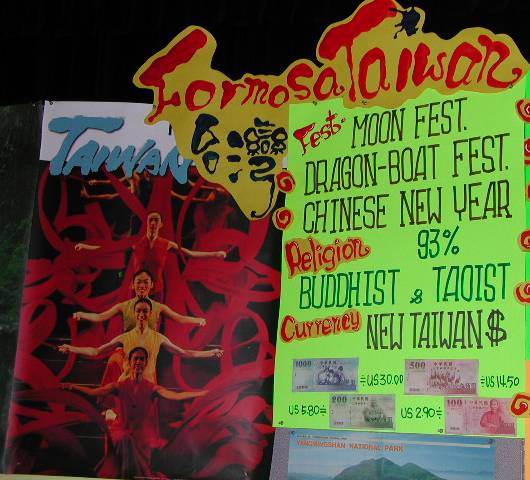 Formosa Taiwan
台灣
TAIWAN
Fest. MOON FEST.
DRAGON-BOAT FEST.
CHINESE NEW YEAR
Religion 93%
BUDDHIST & TAOIST
Currency NEW TAIWAN $
1000 ÷ US 30.00 500 ÷ US 14.50
US 5.80 ÷ 200 US 2.90 ÷ 100
YANGMINGSHAN NATIONAL PARK